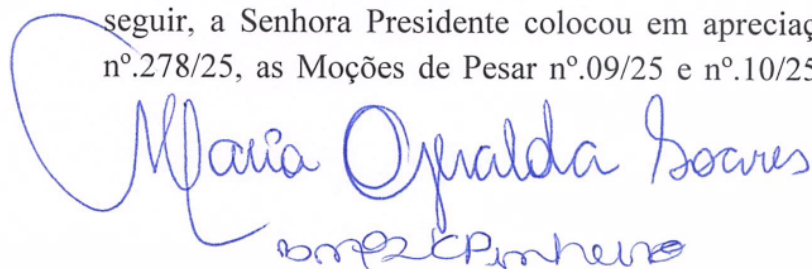 seguir, a Senhora Presidente colocou em apreciaç
nº.278/25, as Moções de Pesar nº.09/25 e nº.10/25
Maria Geralda Soares
Pinheiro